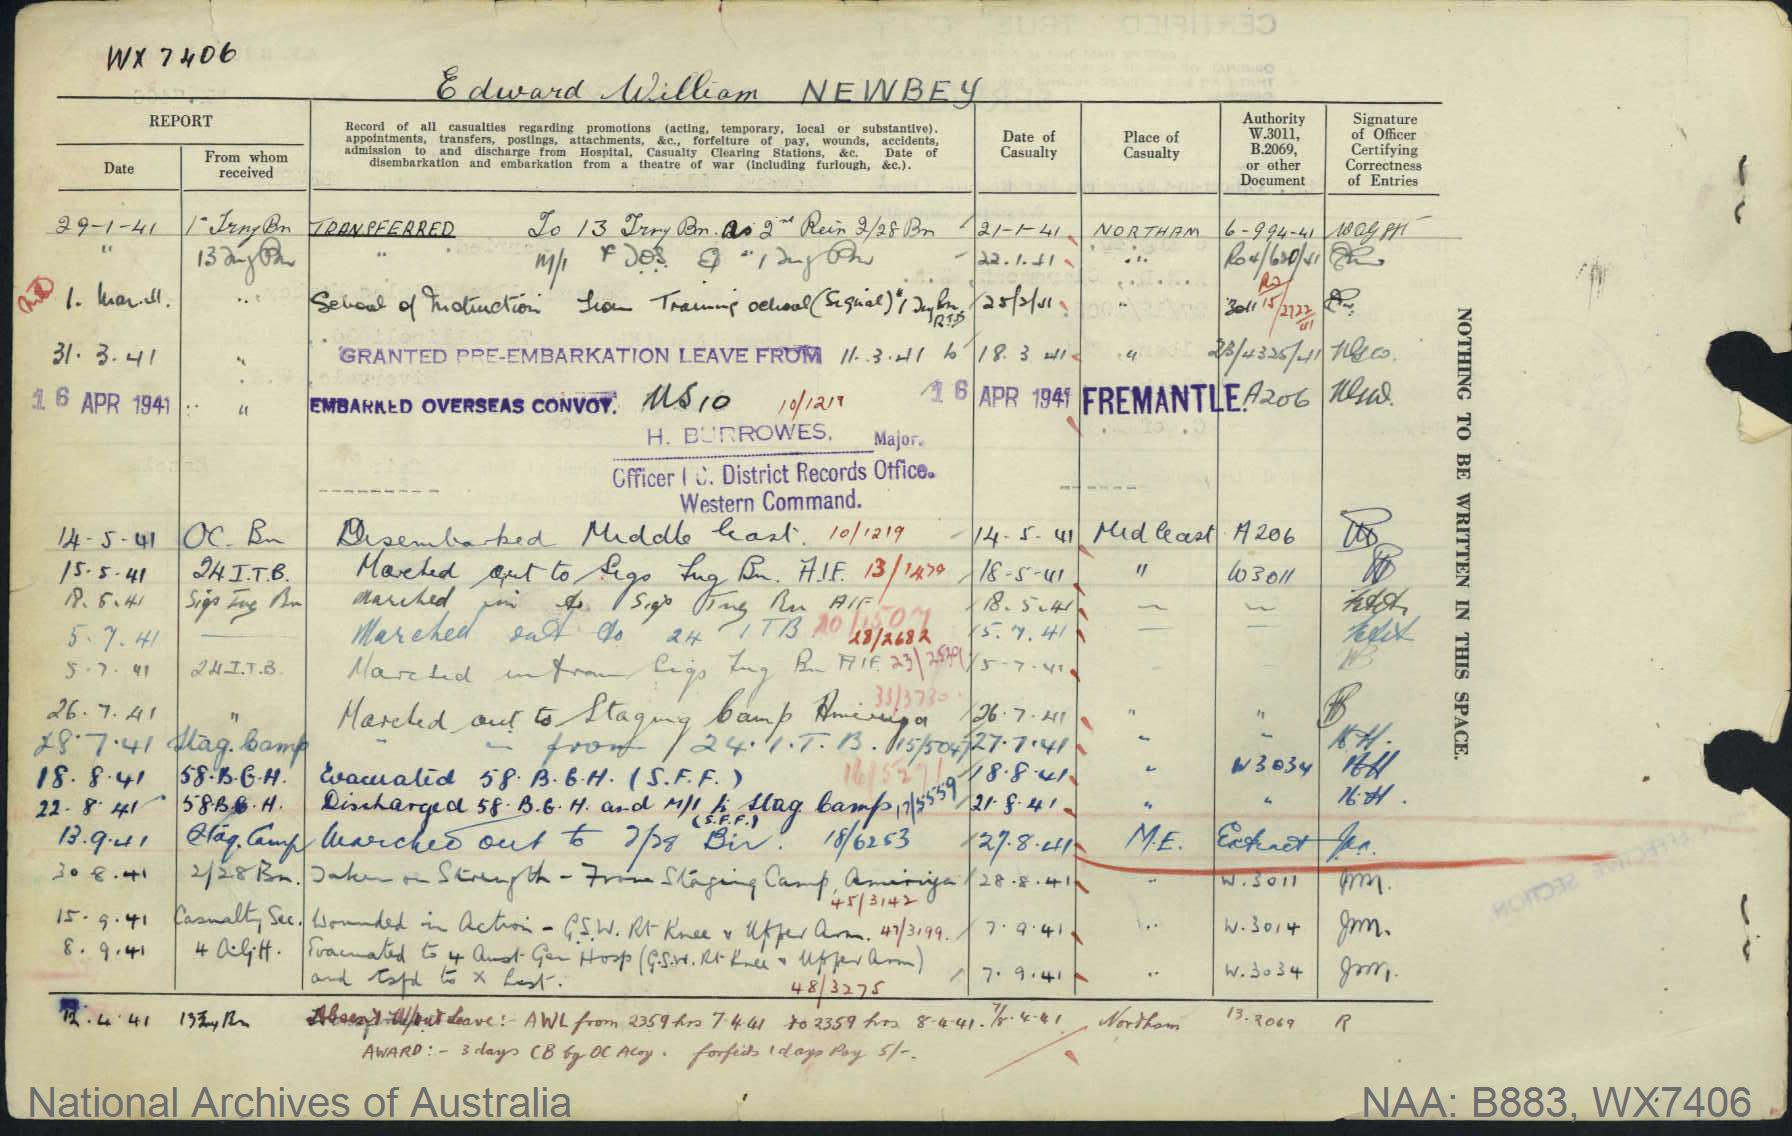 WX 7406
Edward William NEWBEY
REPORT
Date
From whom received
Record of all casualties regarding promotions (acting, temporary, local or substantive),
appointments, transfers, postings, attachments, &c., forfeiture of pay, wounds, accidents,
admission to and discharge from Hospital, Casualty Clearing Stations, &c. Date of
disembarkation and embarkation from a theatre of war (including furlough, &c.).
Date of Casualty
Place of Casualty
Authority W.3011, B.2069, or other Document
Signature of Officer Certifying Correctness of Entries
29-1-41 1st Trng Bn TRANSFERRED To 13 Trng Bn. as 2nd Rein 2/28 Bn 21-1-41 NORTHAM 6-994-41
" 13 Trng Bn " M/I 1 Trng Bn 22.1.41 "
1. Mar. 41. " School of Instruction from Training School (Signal) 1 Trg Bn 25/2/41 " 3011 15/2722/41
31. 3. 41 " GRANTED PRE-EMBARKATION LEAVE FROM 11. 3. 41 to 18. 3 41 " 23/4325/41
16 APR 1941 " EMBARKED OVERSEAS CONVOY. US 10 10/1219 16 APR 1941 FREMANTLE. A206
H. BURROWES, Major.
Officer I C. District Records Office.
Western Command.
14-5-41 OC. Bn Disembarked Middle East. 10/1219 14-5-41 Mid East A206
15.5.41 24 I.T.B. Marched out to Sigs Trg Bn. A.I.F. 13/1479 18-5-41 " W3011
18.5.41 Sigs Trg Bn Marched in to Sigs Trng Bn AIF 20/1507 18.5.41
5.7.41 Marched out to 24 ITB 28/2682 5.7.41
5.7.41 24 I.T.B. Marched in from Sigs Trg Bn AIF. 5-7-41
33/3730
26.7.41 " Marched out to Staging Camp Amiriya 26.7.41 " "
28.7.41 Stag. Camp " " from 24. I. T. B. 15/5047 27.7.41 " " H.H.
16/5271
18.8.41 58.B.G.H. Evacuated 58. B.G.H. (S.F.F.) 18.8.41 " W3034 HH
22.8.41 58 B.G.H. Discharged 58. B.G.H. and M/I to Stag. Camp 17/5559 21.8.41 " " H.H.
(S.F.F.)
13.9.41 Stag. Camp Marched out to 2/28 Bn. 18/6253 27.8.41 M.E. Extract
30 8.41 2/28 Bn. Taken on Strength - From Staging Camp, Amiriya 28.8.41 " W.3011
45/3142
15.9.41 Casualty Sec. Wounded in Action - G.S.W. Rt Knee & Upper Arm. 47/3199. 7.9.41 " W.3014
8.9.41 4 A.G.H. Evacuated to 4 Aust Gen Hosp (G.S.W. Rt Knee & Upper Arm)
and tsfd to X List. 7.9.41 " W.3034
48/3275
12.4.41 13 Trg Bn Absent W/out Leave:- AWL from 2359 hrs 7.4.41 to 2359 hrs 8.4.41. 7/8.4.41 Northam 13.2069 R
AWARD:- 3 days CB by OC A Coy. forfeits 1 days Pay 5/-.
NOTHING TO BE WRITTEN IN THIS SPACE.
National Archives of Australia
NAA: B883, WX7406